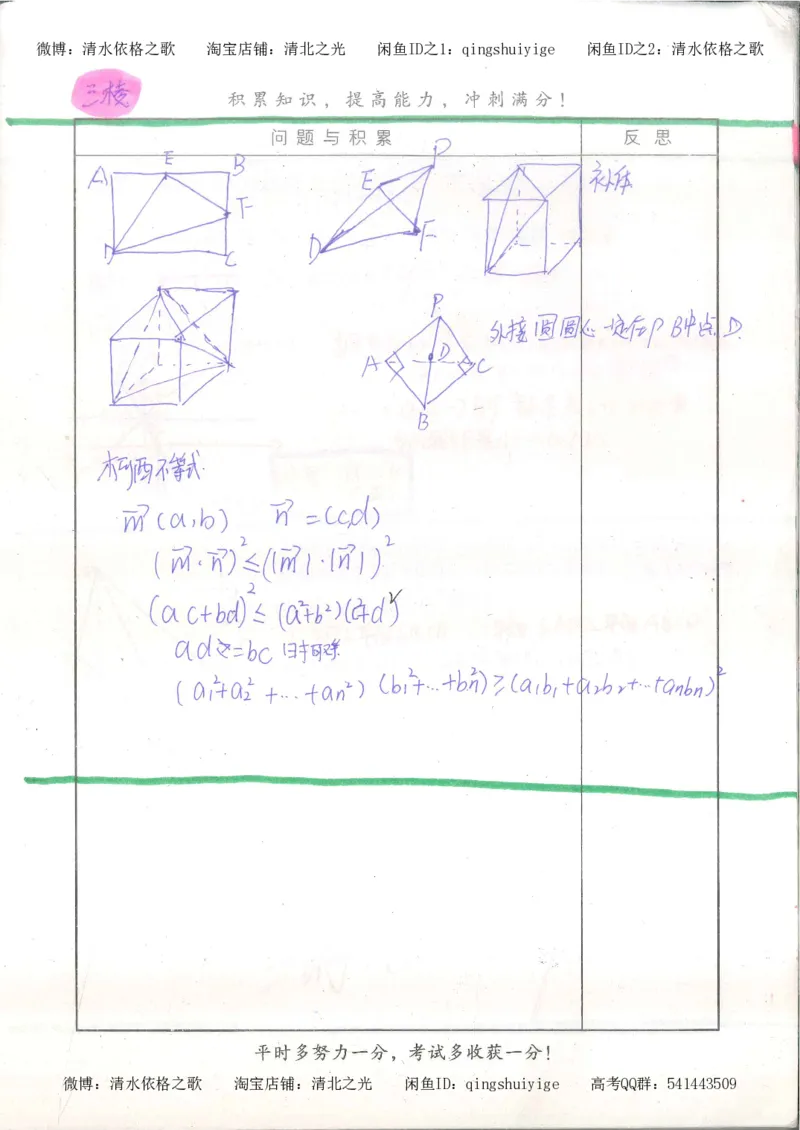 微博：清水依格之歌 淘宝店铺：清北之光 闲鱼ID之1：qingshuiyige 闲鱼ID之2：清水依格之歌
三棱
积累知识，提高能力，冲刺满分！
问题与积累 反思
A E B
F
D C
P
E
D F
补体
P
A D C
B
外接圆圆心一定在PB中点D.
柯西不等式.
m⃗(a,b) n⃗=(c,d)
(m⃗·n⃗)²≤(|m⃗|·|n⃗|)²
(ac+bd)²≤(a²+b²)(c²+d²)
ad=bc 时取
(a₁²+a₂²+…+an²)(b₁²+…+bn²)≥(a₁b₁+a₂b₂+…+anbn)²
平时多努力一分，考试多收获一分！
微博：清水依格之歌 淘宝店铺：清北之光 闲鱼ID：qingshuiyige 高考QQ群：541443509